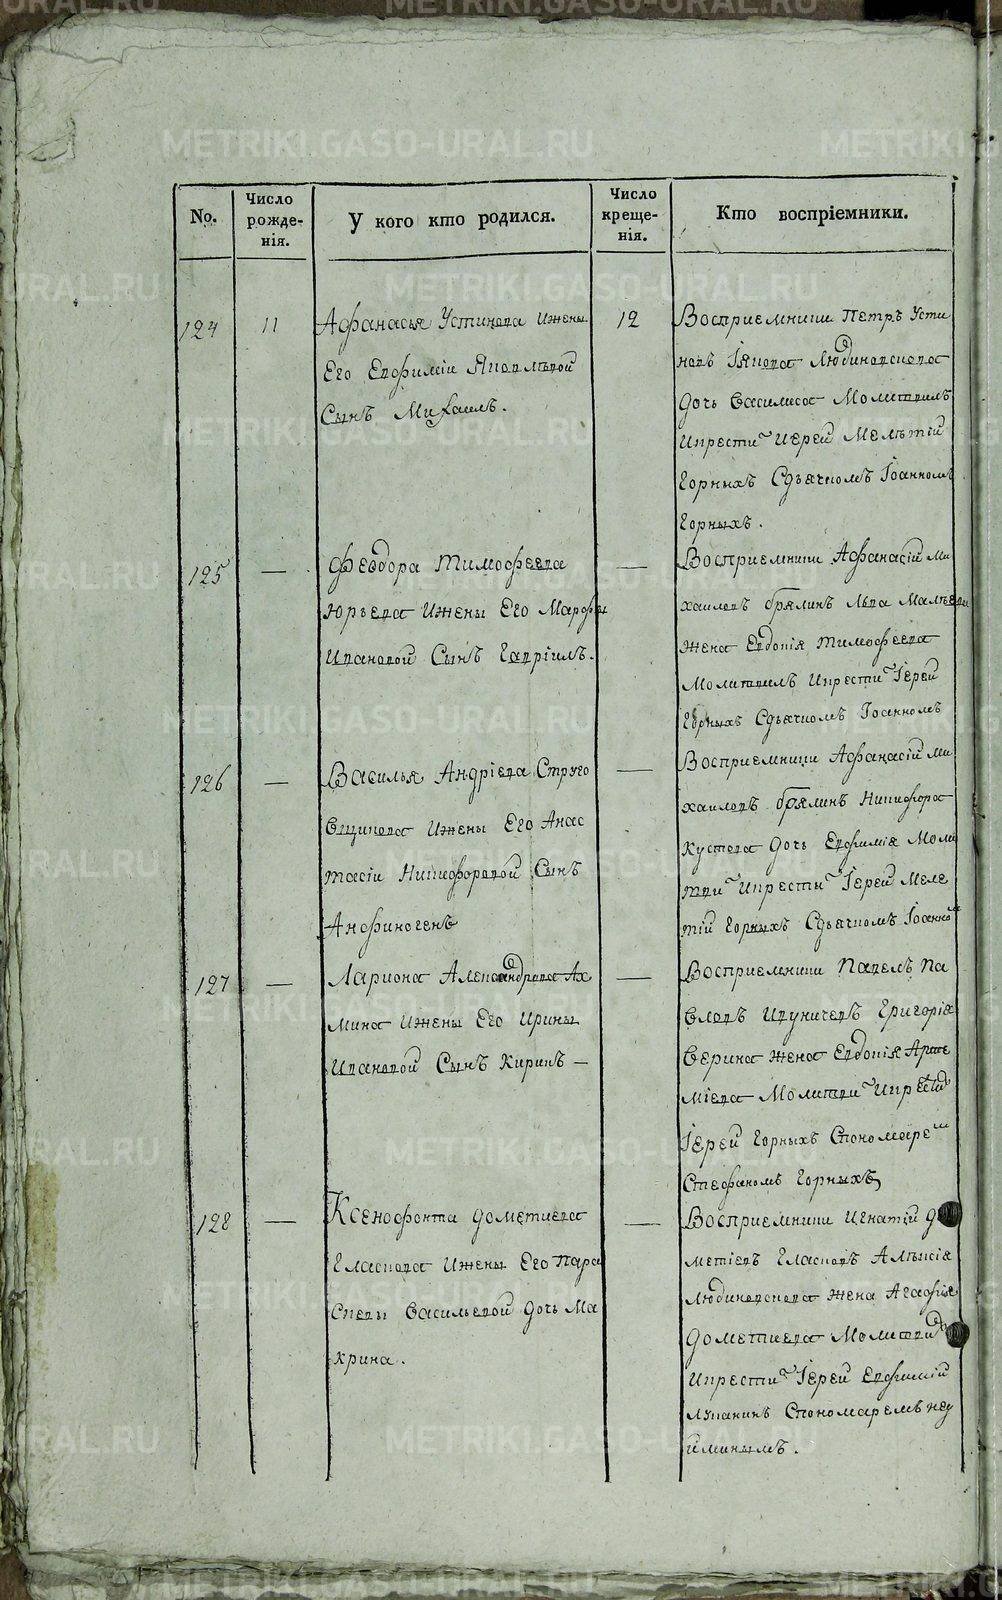 No.
Число рожде-нія.
У кого кто родился.
Число креще-нія.
Кто воспріемники.
124
11
Афанасья Устинова Ижены
Его Евфиміи Яковлевой
Сынъ Михаилъ.
12
Восприемники Петръ Усти
новъ Іякова Людиновскова
дочь Василиса Молитвилъ
Икрести Иерей Мелѣтій
Горныхъ Сдьячкомъ Іоанномъ
Горныхъ.
125
—
Феодора Тимофеева
Юрьева Ижены Его Марфы
Ивановой Сынъ Гавріилъ.
—
Восприемники Афанасій Ми
хаиловъ брялинъ Льва
жена Евдокія Тимофеева
Молитвилъ Икрести Іерей
Горныхъ Сдьячкомъ Іоанномъ
126
—
Василья Андріева Струго
вщикова Ижены Его Анас
тасіи Никифоровой Сынъ
Анфиногенъ
—
Восприемники Афанасій ми
хаиловъ брялинъ Никифора
Кустова дочь Евфимія Моли
тви Икрести Іерей Меле
тій Горныхъ Сдьячкомъ Іоанно
127
—
Лариона Александрова Ах
мина Ижены Его Ирины
Ивановой Сынъ Кирикъ —
—
Восприемники Павелъ Па
вловъ Икуничевъ Григорія
жена Евдокія Арте
міева Молитви Икрести
Іерей Горныхъ Спономаре
Стефаномъ Горныхъ
128
—
Ксенофонта Дометиева
Гласкова Ижены Его Пара
сковы Васильевой дочь Ма
крина.
—
Восприемники Игнатій До
метіевъ Гласковъ Алѣксія
Людиновскова жена Агафія
Дометиева Молитви
Икрести Іерей Евфимій
Лукакинъ Спономаремъ
METRIKI.GASO-URAL.RU